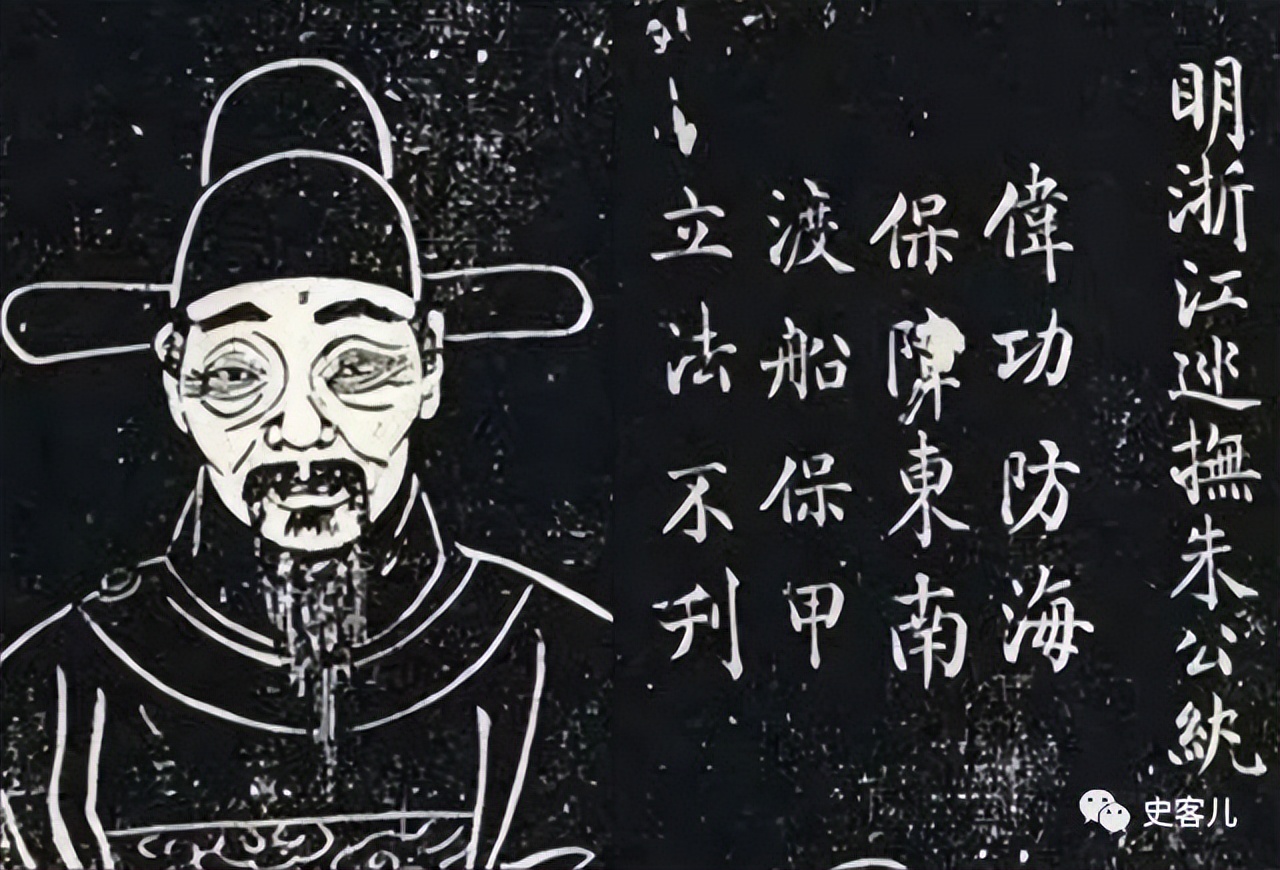 明浙江巡撫朱公紈
偉功防海
保障東南
渡船保甲
立法不刋
史客儿